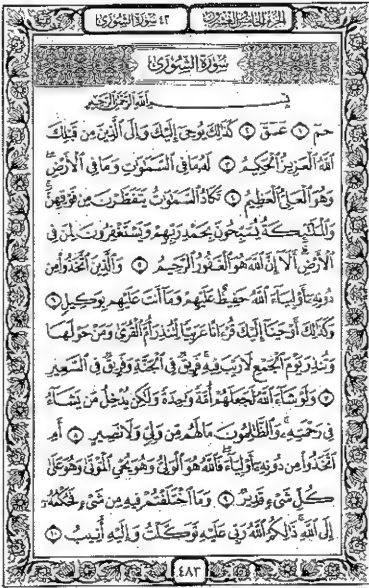 الجزء الخامس والعشرون
٤٢ سورة الشورى
سورة الشورى
بسم الله الرحمن الرحيم
حمٓ ١ عٓسٓقٓ ٢ كَذَٰلِكَ يُوحِىٓ إِلَيْكَ وَإِلَى ٱلَّذِينَ مِن قَبْلِكَ
ٱللَّهُ ٱلْعَزِيزُ ٱلْحَكِيمُ ٣ لَهُۥ مَا فِى ٱلسَّمَٰوَٰتِ وَمَا فِى ٱلْأَرْضِ ۖ
وَهُوَ ٱلْعَلِىُّ ٱلْعَظِيمُ ٤ تَكَادُ ٱلسَّمَٰوَٰتُ يَتَفَطَّرْنَ مِن فَوْقِهِنَّ ۚ
وَٱلْمَلَٰٓئِكَةُ يُسَبِّحُونَ بِحَمْدِ رَبِّهِمْ وَيَسْتَغْفِرُونَ لِمَن فِى
ٱلْأَرْضِ ۗ أَلَآ إِنَّ ٱللَّهَ هُوَ ٱلْغَفُورُ ٱلرَّحِيمُ ٥ وَٱلَّذِينَ ٱتَّخَذُوا۟ مِن
دُونِهِۦٓ أَوْلِيَآءَ ٱللَّهُ حَفِيظٌ عَلَيْهِمْ وَمَآ أَنتَ عَلَيْهِم بِوَكِيلٍ ٦
وَكَذَٰلِكَ أَوْحَيْنَآ إِلَيْكَ قُرْءَانًا عَرَبِيًّا لِّتُنذِرَ أُمَّ ٱلْقُرَىٰ وَمَنْ حَوْلَهَا
وَتُنذِرَ يَوْمَ ٱلْجَمْعِ لَا رَيْبَ فِيهِ ۚ فَرِيقٌ فِى ٱلْجَنَّةِ وَفَرِيقٌ فِى ٱلسَّعِيرِ
٧ وَلَوْ شَآءَ ٱللَّهُ لَجَعَلَهُمْ أُمَّةً وَٰحِدَةً وَلَٰكِن يُدْخِلُ مَن يَشَآءُ
فِى رَحْمَتِهِۦ ۚ وَٱلظَّٰلِمُونَ مَا لَهُم مِّن وَلِىٍّ وَلَا نَصِيرٍ ٨ أَمِ
ٱتَّخَذُوا۟ مِن دُونِهِۦٓ أَوْلِيَآءَ ۖ فَٱللَّهُ هُوَ ٱلْوَلِىُّ وَهُوَ يُحْىِ ٱلْمَوْتَىٰ وَهُوَ عَلَىٰ
كُلِّ شَىْءٍ قَدِيرٌ ٩ وَمَا ٱخْتَلَفْتُمْ فِيهِ مِن شَىْءٍ فَحُكْمُهُۥٓ
إِلَى ٱللَّهِ ۚ ذَٰلِكُمُ ٱللَّهُ رَبِّى عَلَيْهِ تَوَكَّلْتُ وَإِلَيْهِ أُنِيبُ ١٠
٤٨٣